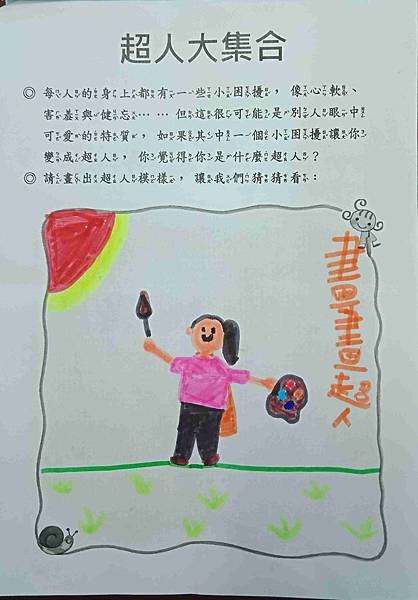 超人大集合
◎ 每人的身上都有一些小困擾，像心軟、
害羞與健忘……但這很可能是別人眼中
可愛的特質，如果其中一個小困擾讓你
變成超人，你覺得你是什麼超人？
◎ 請畫出超人模樣，讓我們猜猜看：
畫畫超人